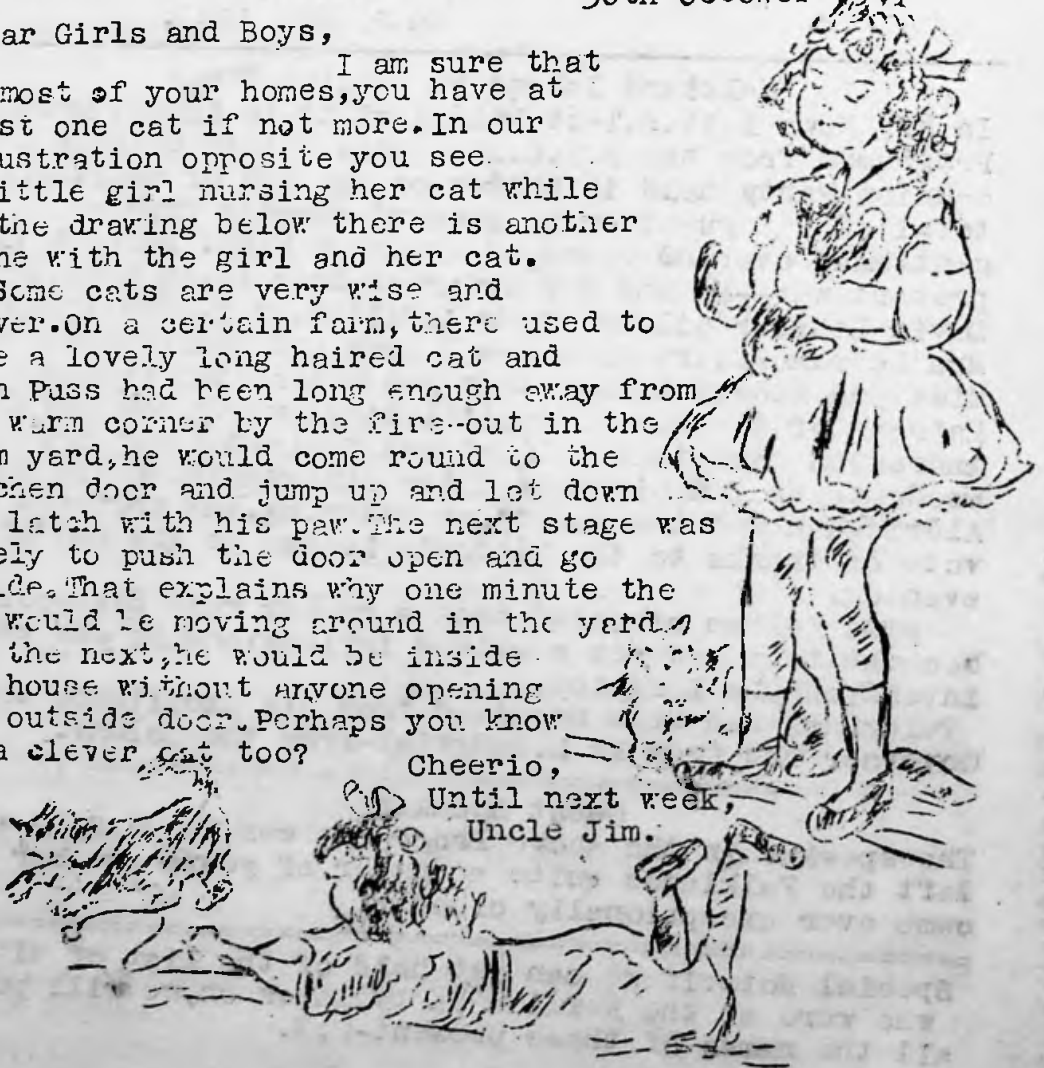 30th October
ar Girls and Boys,
I am sure that
most of your homes,you have at
st one cat if not more.In our
ustration opposite you see
ittle girl nursing her cat while
the drawing below there is another
ne with the girl and her cat.
Some cats are very wise and
ver.On a certain farm,there used to
e a lovely long haired cat and
n Puss had been long enough away from
warm corner by the fire-out in the
m yard,he would come round to the
chen door and jump up and let down
latch with his paw.The next stage was
ely to push the door open and go
ide.That explains why one minute the
would be moving around in the yard
the next,he would be inside
house without anyone opening
outside door.Perhaps you know
a clever cat too?
Cheerio,
Until next week,
Uncle Jim.